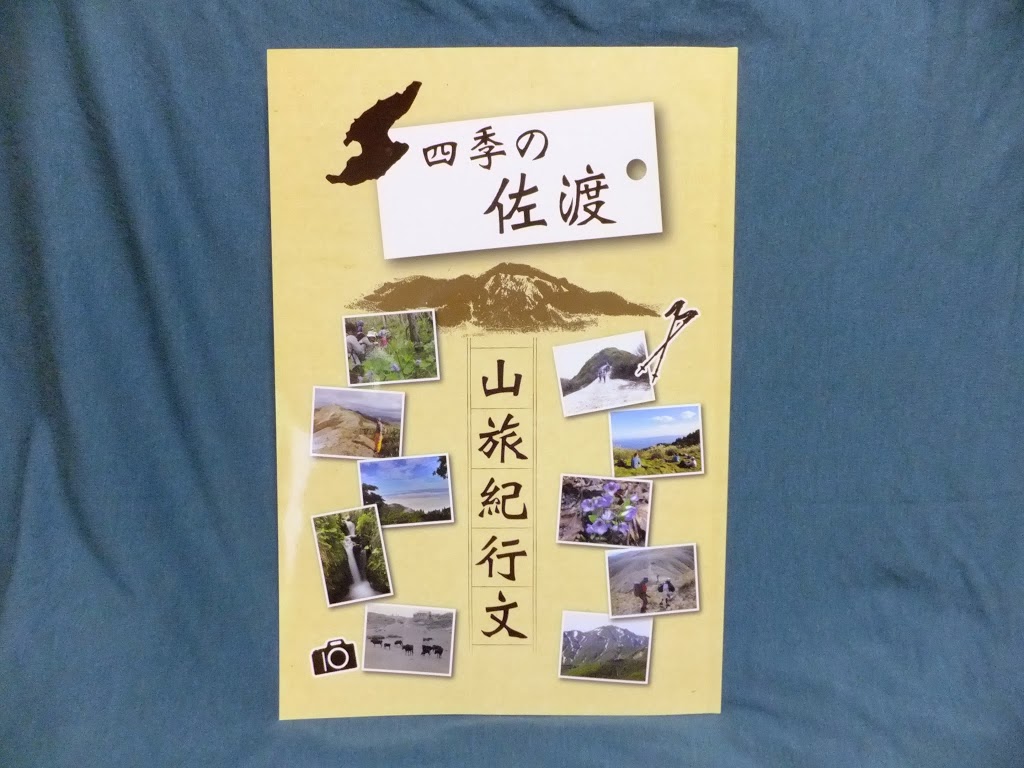 四季の
佐渡
山旅紀行文